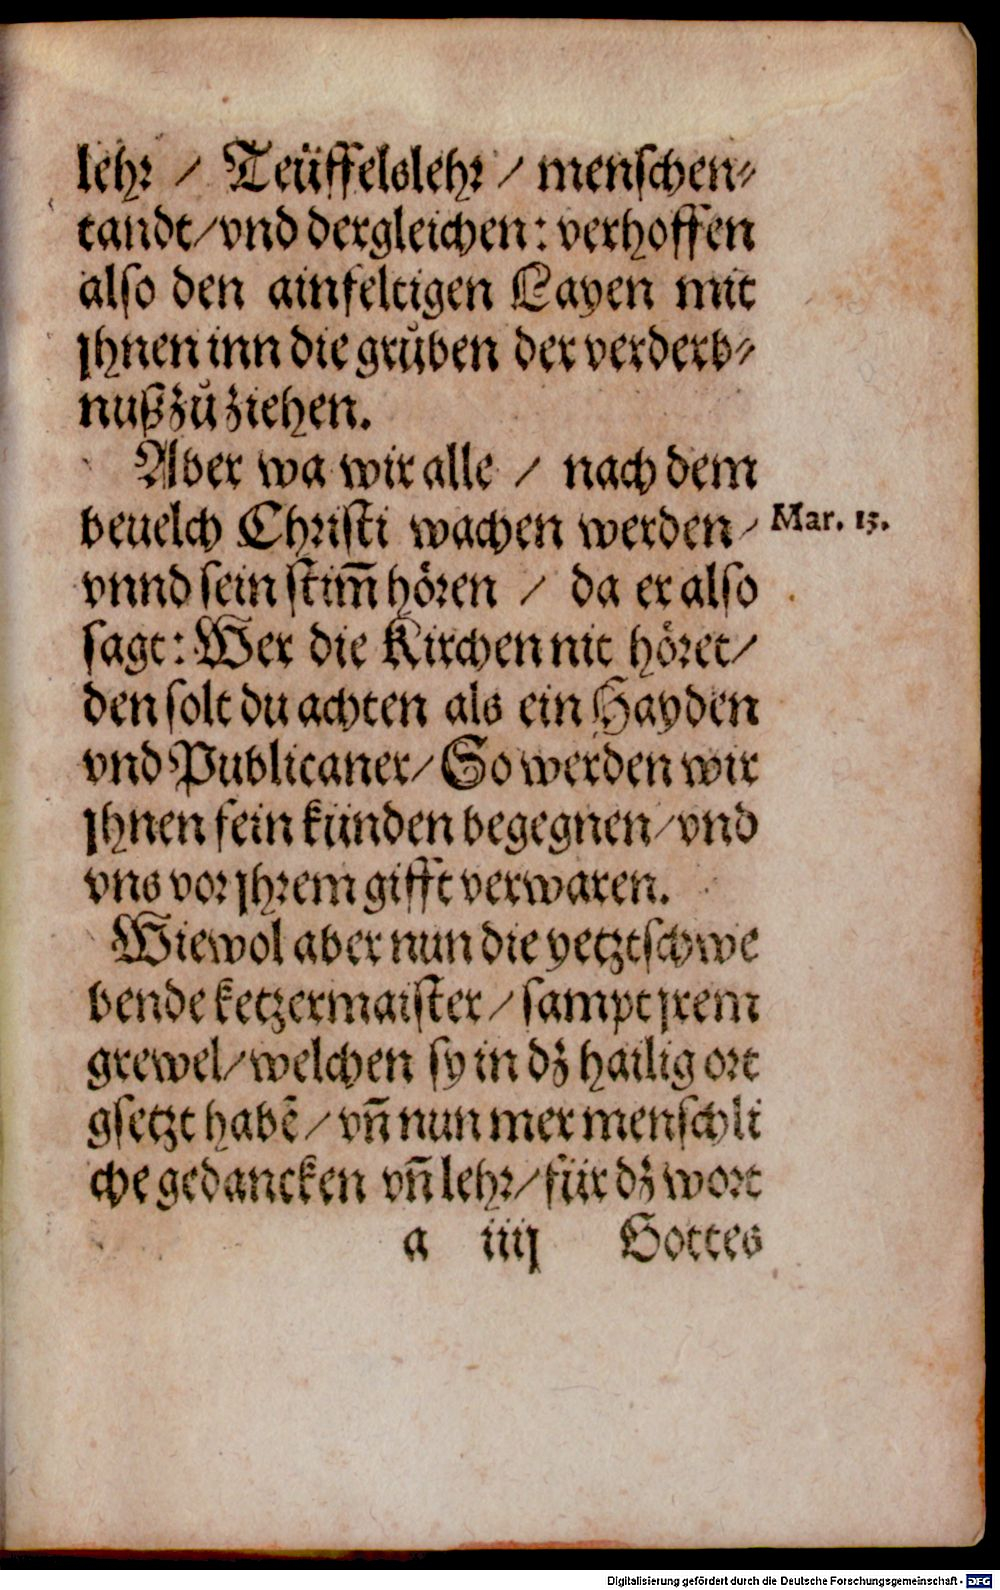 lehr / Teüffelslehr / menschen⸗
tandt/vnd dergleichen: verhoffen
also den ainfeltigen Layen mit
jhnen inn die grůben der verderb⸗
nuß zů ziehen.
Aber wa wir alle / nach dem
beuelch Christi wachen werden/ Mar. 13.
vnnd sein stim̃ hören / da er also
sagt: Wer die Kirchen nit höret/
den solt du achten als ein Hayden
vnd Publicaner/ So werden wir
jhnen fein künden begegnen/vnd
vns vor jhrem gifft verwaren.
Wiewol aber nun die yetztschwe
bende ketzermaister/sampt jrem
grewel/welchen sy in dz hailig ort
gsetzt habẽ/vñ nun mer menschli
che gedancken vñ lehr/für dz wort
a iiij Gottes
Digitalisierung gefördert durch die Deutsche Forschungsgemeinschaft - DFG